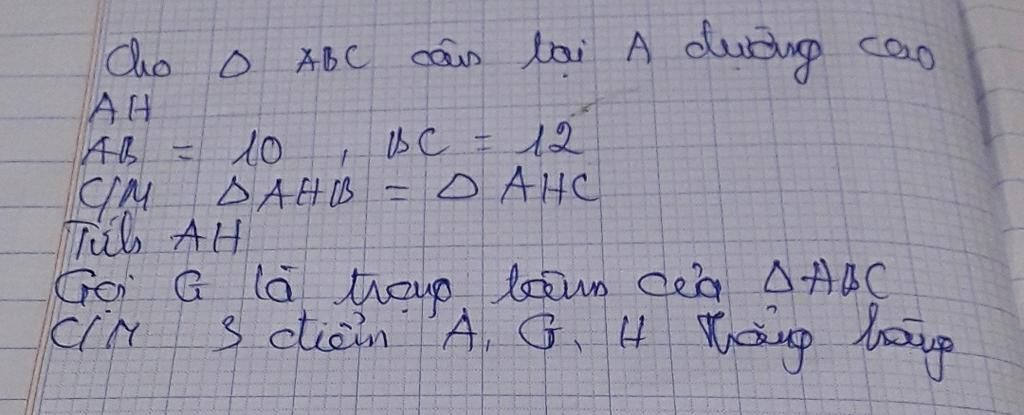 Cho Δ ABC cân tại A đường cao
AH
AB = 10 , BC = 12
C/M Δ AHB = Δ AHC
Tính AH
Gọi G là trọng tâm của Δ ABC
C/M 3 điểm A, G, H thẳng hàng